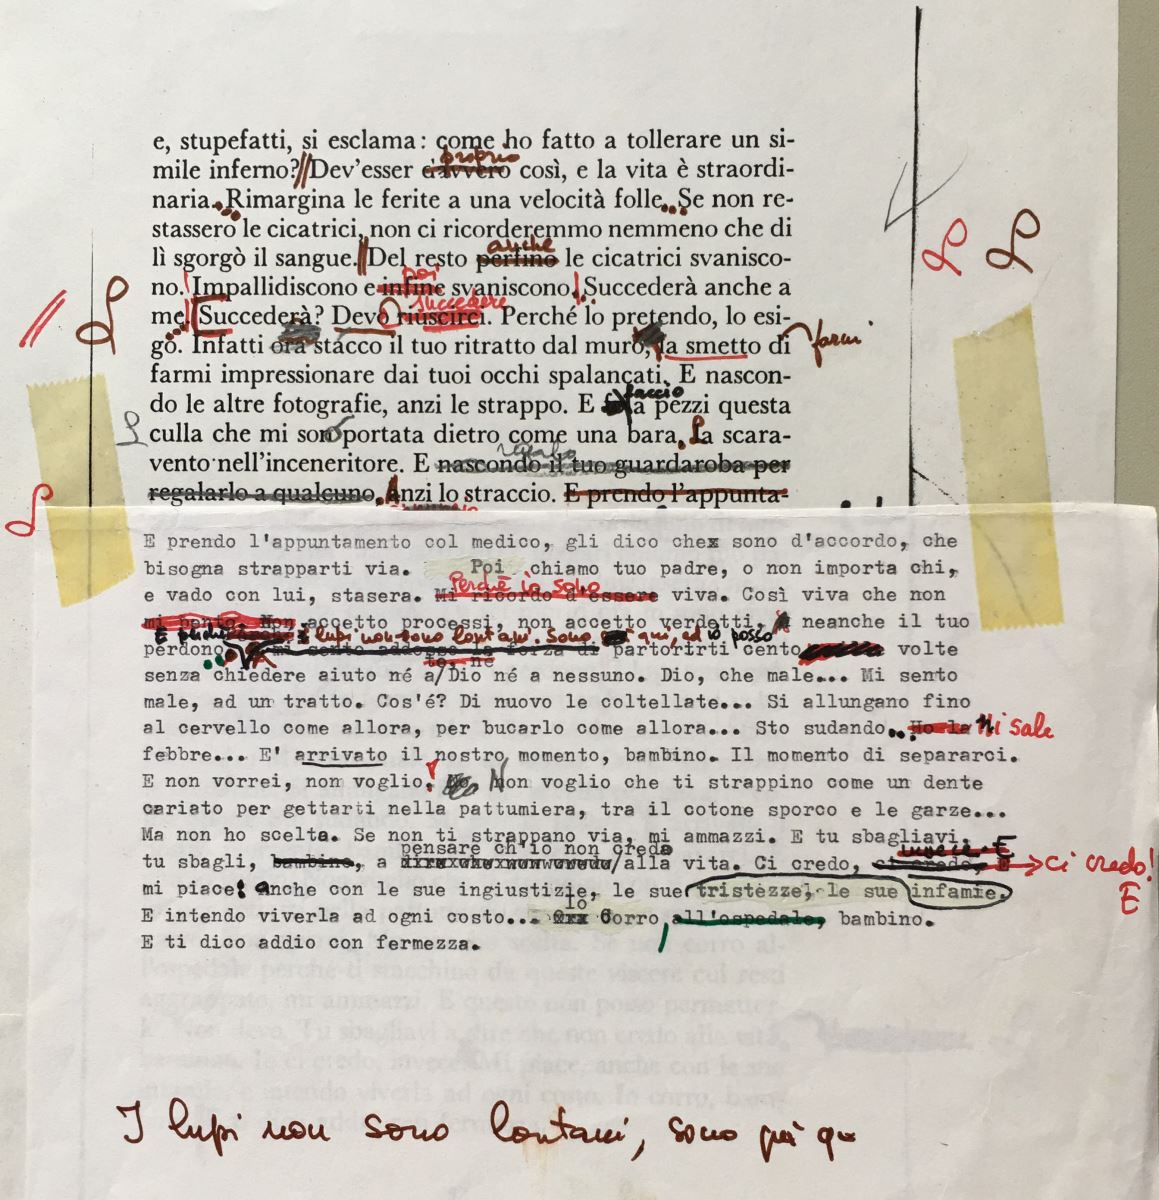 e, stupefatti, si esclama: come ho fatto a tollerare un si-
proprio
mile inferno?//Dev'esser davvero così, e la vita è straordi-
naria... Rimargina le ferite a una velocità folle... Se non re-
stassero le cicatrici, non ci ricorderemmo nemmeno che di
anche
lì sgorgò il sangue.//Del resto perfino le cicatrici svanisco-
poi
no. Impallidiscono e infine svaniscono! Succederà anche a
succedere
me! Succederà? Devo riuscirci. Perché lo pretendo, lo esi-
go. Infatti ora stacco il tuo ritratto dal muro, la smetto di farmi
farmi impressionare dai tuoi occhi spalancati. E nascon-
faccio
do le altre fotografie, anzi le strappo. E a pezzi questa
culla che mi son portata dietro come una bara. La scara-
vento nell'inceneritore. E nascondo il tuo guardaroba per
regalarlo a qualcuno, Anzi lo straccio. E prendo l'appunta-
E prendo l'appuntamento col medico, gli dico che sono d'accordo, che
bisogna strapparti via. Poi chiamo tuo padre, o non importa chi,
Perché io sono
e vado con lui, stasera. Mi ricordo d'essere viva. Così viva che non
mi pento. Non accetto processi, non accetto verdetti, neanche il tuo
E perché i lupi non sono lontani. Sono qui, ed io posso
perdono mi sento addosso la forza di partorirti cento volte
te, né
senza chiedere aiuto né a/Dio né a nessuno. Dio, che male... Mi sento
male, ad un tratto. Cos'é? Di nuovo le coltellate... Si allungano fino
al cervello come allora, per bucarlo come allora... Sto sudando... Ho la Mi sale
febbre... E' arrivato il nostro momento, bambino. Il momento di separarci.
E non vorrei, non voglio! Non voglio che ti strappino come un dente
cariato per gettarti nella pattumiera, tra il cotone sporco e le garze...
Ma non ho scelta. Se non ti strappano via, mi ammazzi. E tu sbagliavi,
pensare ch'io non creda
invece. E
tu sbagli, bambino, a /alla vita. Ci credo, ci credo, E ci credo!
mi piace! anche con le sue ingiustizie, le sue tristezze, le sue infamie. E
Io
E intendo viverla ad ogni costo... Corro, all'ospedale, bambino.
E ti dico addio con fermezza.
I lupi non sono lontani, sono già qui